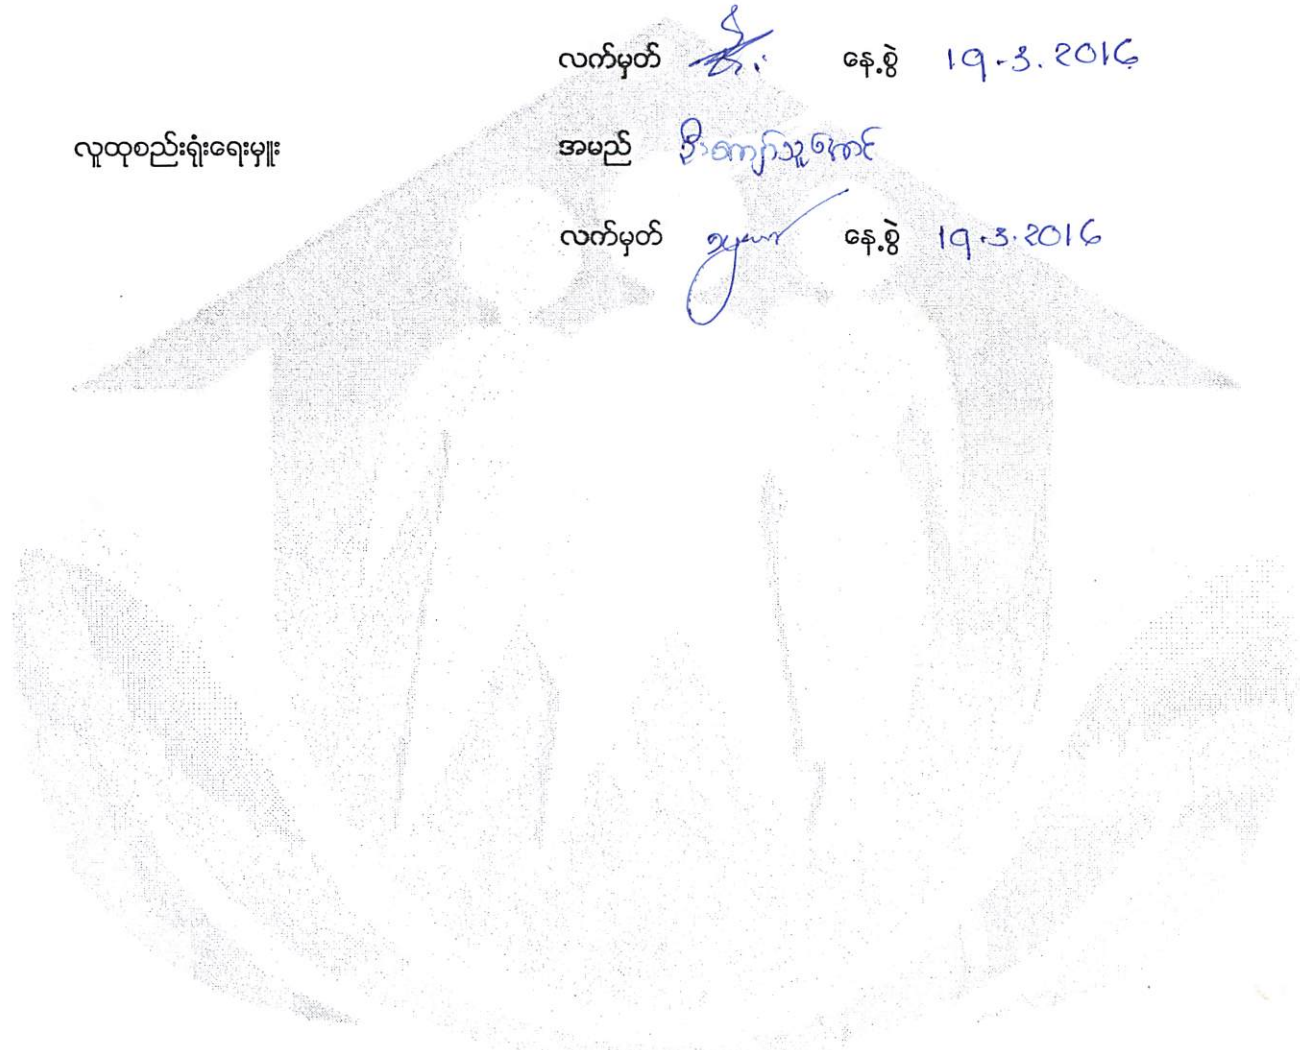 လက်မှတ် နေ့စွဲ 19.3.2016
လူထုစည်းရုံးရေးမှူး အမည် ဦးကျော်သူအောင်
လက်မှတ် နေ့စွဲ 19.3.2016